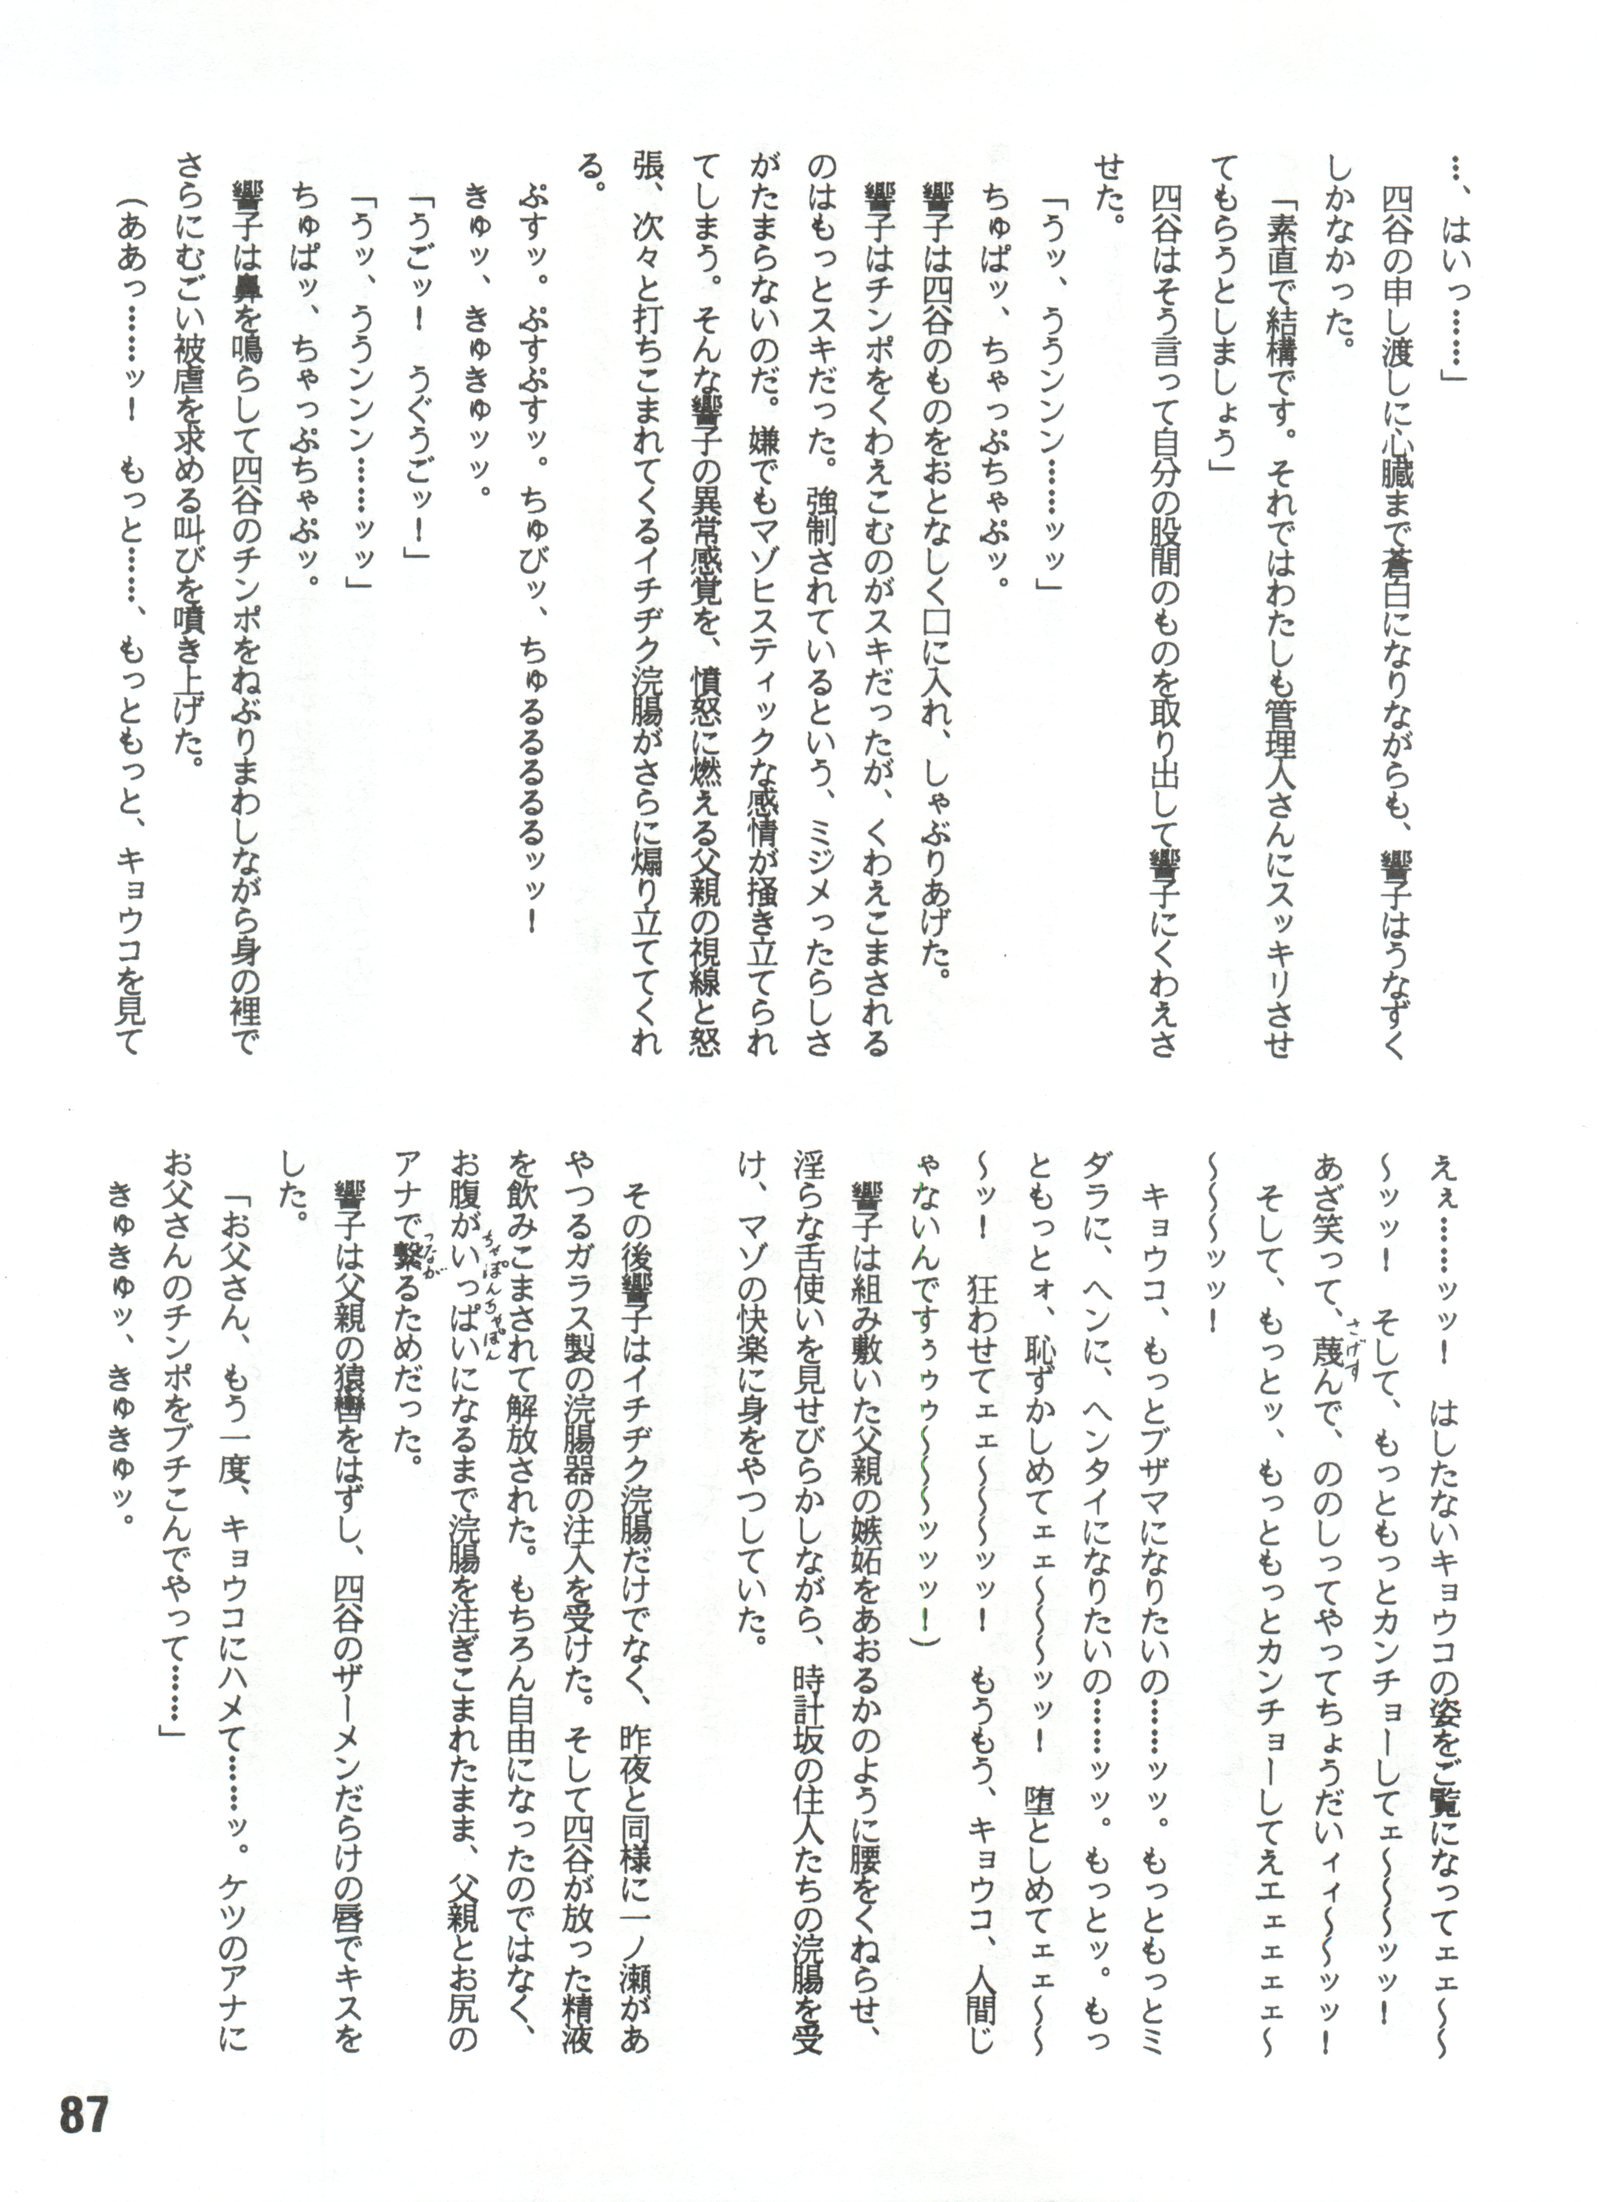 …、はいっ……」
　四谷の申し渡しに心臓まで蒼白になりながらも、響子はうなずく
しかなかった。
「素直で結構です。それではわたしも管理人さんにスッキリさせ
てもらうとしましょう」
　四谷はそう言って自分の股間のものを取り出して響子にくわえさ
せた。
「うッ、ううンンン……ッッ」
　ちゅぱッ、ちゃっぷちゃぷッ。
　響子は四谷のものをおとなしく口に入れ、しゃぶりあげた。
　響子はチンポをくわえこむのがスキだったが、くわえこまされる
のはもっとスキだった。強制されているという、ミジメったらしさ
がたまらないのだ。嫌でもマゾヒスティックな感情が掻き立てられ
てしまう。そんな響子の異常感覚を、憤怒に燃える父親の視線と怒
張、次々と打ちこまれてくるイチヂク浣腸がさらに煽り立ててくれ
る。
　ぷすッ。ぷすぷすッ。ちゅびッ、ちゅるるるるるッッ！
　きゅッ、きゅきゅッッ。
「うごッ！　うぐうごッ！」
「うッ、ううンンン……ッッ」
　ちゅぱッ、ちゃっぷちゃぷッ。
　響子は鼻を鳴らして四谷のチンポをねぶりまわしながら身の裡で
さらにむごい被虐を求める叫びを噴き上げた。
（ああっ……ッ！　もっと……、もっともっと、キョウコを見て
えぇ……ッッ！　はしたないキョウコの姿をご覧になってェェ～～
～ッッ！　そして、もっともっとカンチョーしてェ～～～ッッ！
あざ笑って、蔑んで、ののしってやってちょうだいィィ～～ッッ！
さげす
　そして、もっとッ、もっともっとカンチョーしてえエェェェェ～
～～～ッッ！
　キョウコ、もっとブザマになりたいの……ッッ。もっともっとミ
ダラに、ヘンに、ヘンタイになりたいの……ッッ。もっとッ。もっ
ともっとォ、恥ずかしめてェェ～～～ッッ！　堕としめてェェ～～
～ッ！　狂わせてェェ～～～ッッ！　もうもう、キョウコ、人間じ
ゃないんですぅゥゥ～～～ッッッ！）
　響子は組み敷いた父親の嫉妬をあおるかのように腰をくねらせ、
淫らな舌使いを見せびらかしながら、時計坂の住人たちの浣腸を受
け、マゾの快楽に身をやつしていた。
　その後響子はイチヂク浣腸だけでなく、昨夜と同様に一ノ瀬があ
やつるガラス製の浣腸器の注入を受けた。そして四谷が放った精液
を飲みこまされて解放された。もちろん自由になったのではなく、
ちゃぽんちゃぽん
お腹がいっぱいになるまで浣腸を注ぎこまれたまま、父親とお尻の
つなが
アナで繋るためだった。
　響子は父親の猿轡をはずし、四谷のザーメンだらけの唇でキスを
した。
「お父さん、もう一度、キョウコにハメて……ッ。ケツのアナに
お父さんのチンポをブチこんでやって……」
　きゅきゅッ、きゅきゅッ。
87